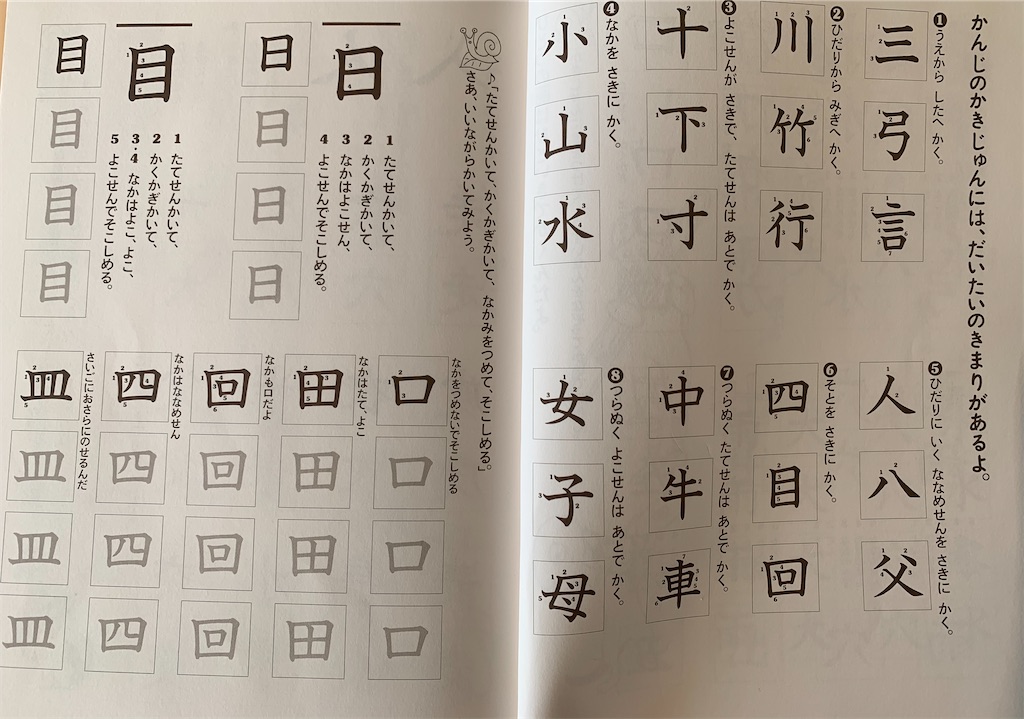 かんじのかきじゅんには、だいたいのきまりがあるよ。
❶うえから したへ かく。
三
弓
言
❷ひだりから みぎへ かく。
川
竹
行
❸よこせんが さきで、 たてせんは あとで かく。
十
下
寸
❹なかを さきに かく。
小
山
水
❺ひだりに いく ななめせんを さきに かく。
人
八
父
❻そとを さきに かく。
四
目
回
❼つらぬく たてせんは あとで かく。
中
牛
車
❽つらぬく よこせんは あとで かく。
女
子
母
♪「たてせんかいて、かくかぎかいて、 なかみをつめて、そこしめる。」
さあ、いいながらかいてみよう。
日
1 たてせんかいて、
2 かくかぎかいて、
3 なかはよこせん、
4 よこせんでそこしめる。
日
日
日
日
目
1 たてせんかいて、
2 かくかぎかいて、
3・4 なかはよこ、よこ、
5 よこせんでそこしめる。
目
目
目
目
なかをつめないでそこしめる
口
口
口
口
なかはたて、よこ
田
田
田
田
なかも口だよ
回
回
回
回
なかはななめせん
四
四
四
四
さいごにおさらにのせるんだ
皿
皿
皿
皿